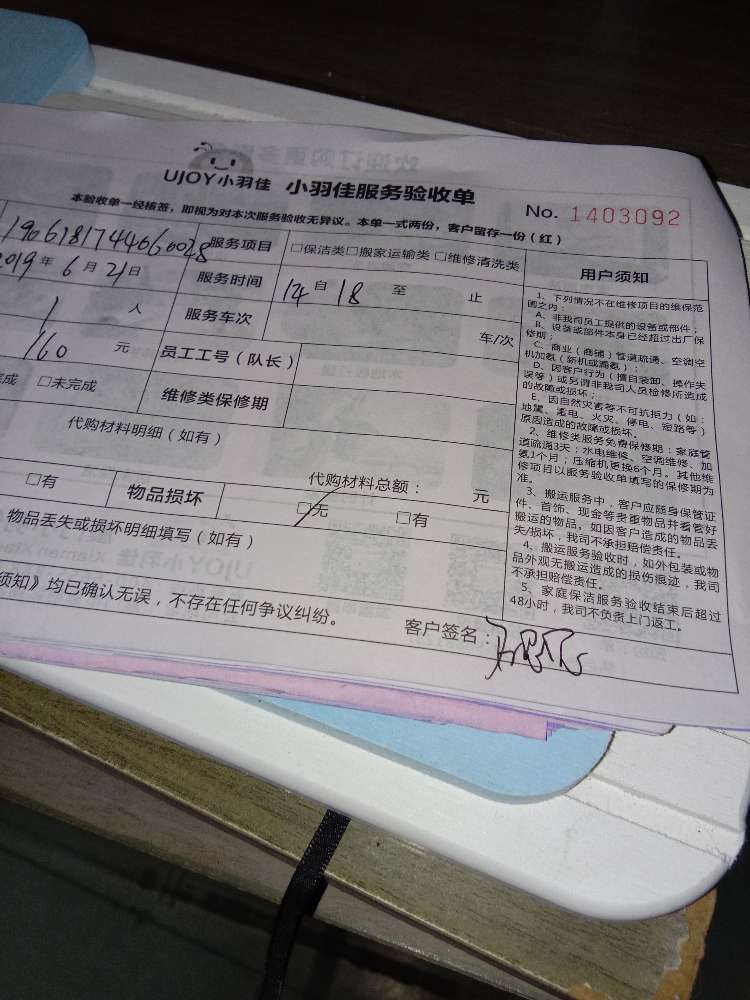 UJOY小羽佳 小羽佳服务验收单
No. 1403092
本验收单一经核签，即视为对本次服务验收无异议。本单一式两份，客户留存一份（红）
服务项目 □保洁类□搬家运输类□维修清洗类
2019年6月21日 服务时间 14自18至 止
1人 服务车次 车/次
160元 员工工号（队长）
□未完成 维修类保修期
代购材料明细（如有）
代购材料总额： 元
□有 物品损坏 □无 □有
物品丢失或损坏明细填写（如有）
须知》均已确认无误，不存在任何争议纠纷。
客户签名：
用户须知
1、下列情况不在维修项目的维保范
围之内：
A、非我司员工提供的设备或部件；
B、设备或部件本身已经超过出厂保
修期；
C、商业（商铺）管道疏通、空调空
机加氨（新机或漏氨）；
D、因客户行为（擅自装卸、操作失
误等）或另请非我司人员检修所造成
的故障或损坏；
E、因自然灾害等不可抗拒力（如：
地震、雷电、火灾、停电、短路等）
原因造成的故障或损坏。
2、维修类服务免费保修期：家庭管
道疏通3天；水电维修、空调维修、加
氨1个月；压缩机更换6个月。其他维
修项目以服务验收单填写的保修期为
准。
3、搬运服务中，客户应随身保管证
件、首饰、现金等贵重物品并看管好
搬运的物品，如因客户造成的物品丢
失/损坏，我司不承担赔偿责任。
4、搬运服务验收时，如外包装或物
品外观无搬运造成的损伤痕迹，我司
不承担赔偿责任。
5、家庭保洁服务验收结束后超过
48小时，我司不负责上门返工。